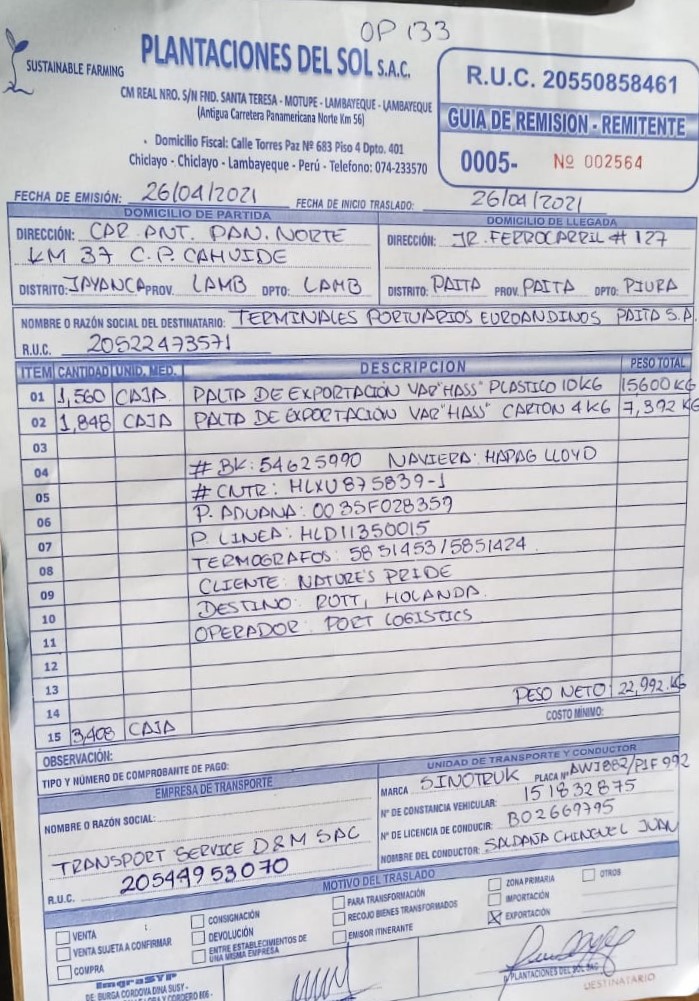 OP 133
SUSTAINABLE FARMING
PLANTACIONES DEL SOL S.A.C.
CM REAL NRO. S/N FND. SANTA TERESA - MOTUPE - LAMBAYEQUE - LAMBAYEQUE
(Antigua Carretera Panamericana Norte Km 56)
Domicilio Fiscal: Calle Torres Paz Nº 683 Piso 4 Dpto. 401
Chiclayo - Chiclayo - Lambayeque - Perú - Telefono: 074-233570
R.U.C. 20550858461
GUIA DE REMISION - REMITENTE
0005- Nº 002564
FECHA DE EMISIÓN: 26/04/2021 FECHA DE INICIO TRASLADO: 26/04/2021
DOMICILIO DE PARTIDA
DIRECCIÓN: CAR. ANT. PAN. NORTE
KM 37 C.P. CAHUIDE
DISTRITO: JAYANCA PROV. LAMB DPTO: LAMB
DOMICILIO DE LLEGADA
DIRECCIÓN: JR. FERROCARRIL # 127
DISTRITO: PAITA PROV. PAITA DPTO: PIURA
NOMBRE O RAZÓN SOCIAL DEL DESTINATARIO: TERMINALES PORTUARIOS EUROANDINOS PAITA S.A.
R.U.C. 20522473571
ITEM CANTIDAD UNID. MED. DESCRIPCION PESO TOTAL
01 1,560 CAJA PALTA DE EXPORTACIÓN VAR "HASS" PLASTICO 10KG 15600 KG
02 1,848 CAJA PALTA DE EXPORTACIÓN VAR "HASS" CARTON 4KG 7,392 KG
03
04 # BK: 54625990 NAVIERA: HAPAG LLOYD
05 # CNTR: HLXU 875839-1
06 P. ADUANA: 0035F028359
07 P. LINEA: HLD11350015
08 TERMOGRAFOS: 5851453/5851424
09 CLIENTE: NATURE'S PRIDE
10 DESTINO: ROTT, HOLANDA.
11 OPERADOR: PORT LOGISTICS
12
13
14 PESO NETO 22,992.KG
15 3,408 CAJA COSTO MÍNIMO:
OBSERVACIÓN:
TIPO Y NÚMERO DE COMPROBANTE DE PAGO:
EMPRESA DE TRANSPORTE
NOMBRE O RAZÓN SOCIAL:
TRANSPORT SERVICE D&M SAC
R.U.C. 20549953070
UNIDAD DE TRANSPORTE Y CONDUCTOR
MARCA SINOTRUK PLACA Nº AWI882/P1F992
Nº DE CONSTANCIA VEHICULAR: 151832875
Nº DE LICENCIA DE CONDUCIR: B02669795
NOMBRE DEL CONDUCTOR: SALDAÑA CHINGUEL JUAN
MOTIVO DEL TRASLADO
VENTA
VENTA SUJETA A CONFIRMAR
COMPRA
CONSIGNACIÓN
DEVOLUCIÓN
ENTRE ESTABLECIMIENTOS DE UNA MISMA EMPRESA
PARA TRANSFORMACIÓN
RECOJO BIENES TRANSFORMADOS
EMISOR ITINERANTE
ZONA PRIMARIA
IMPORTACIÓN
X EXPORTACIÓN
OTROS
ImgraSYP
DE: BURGA CORDOVA DINA SUSY -
P. PLANTACIONES DEL SOL SAC
DESTINATARIO